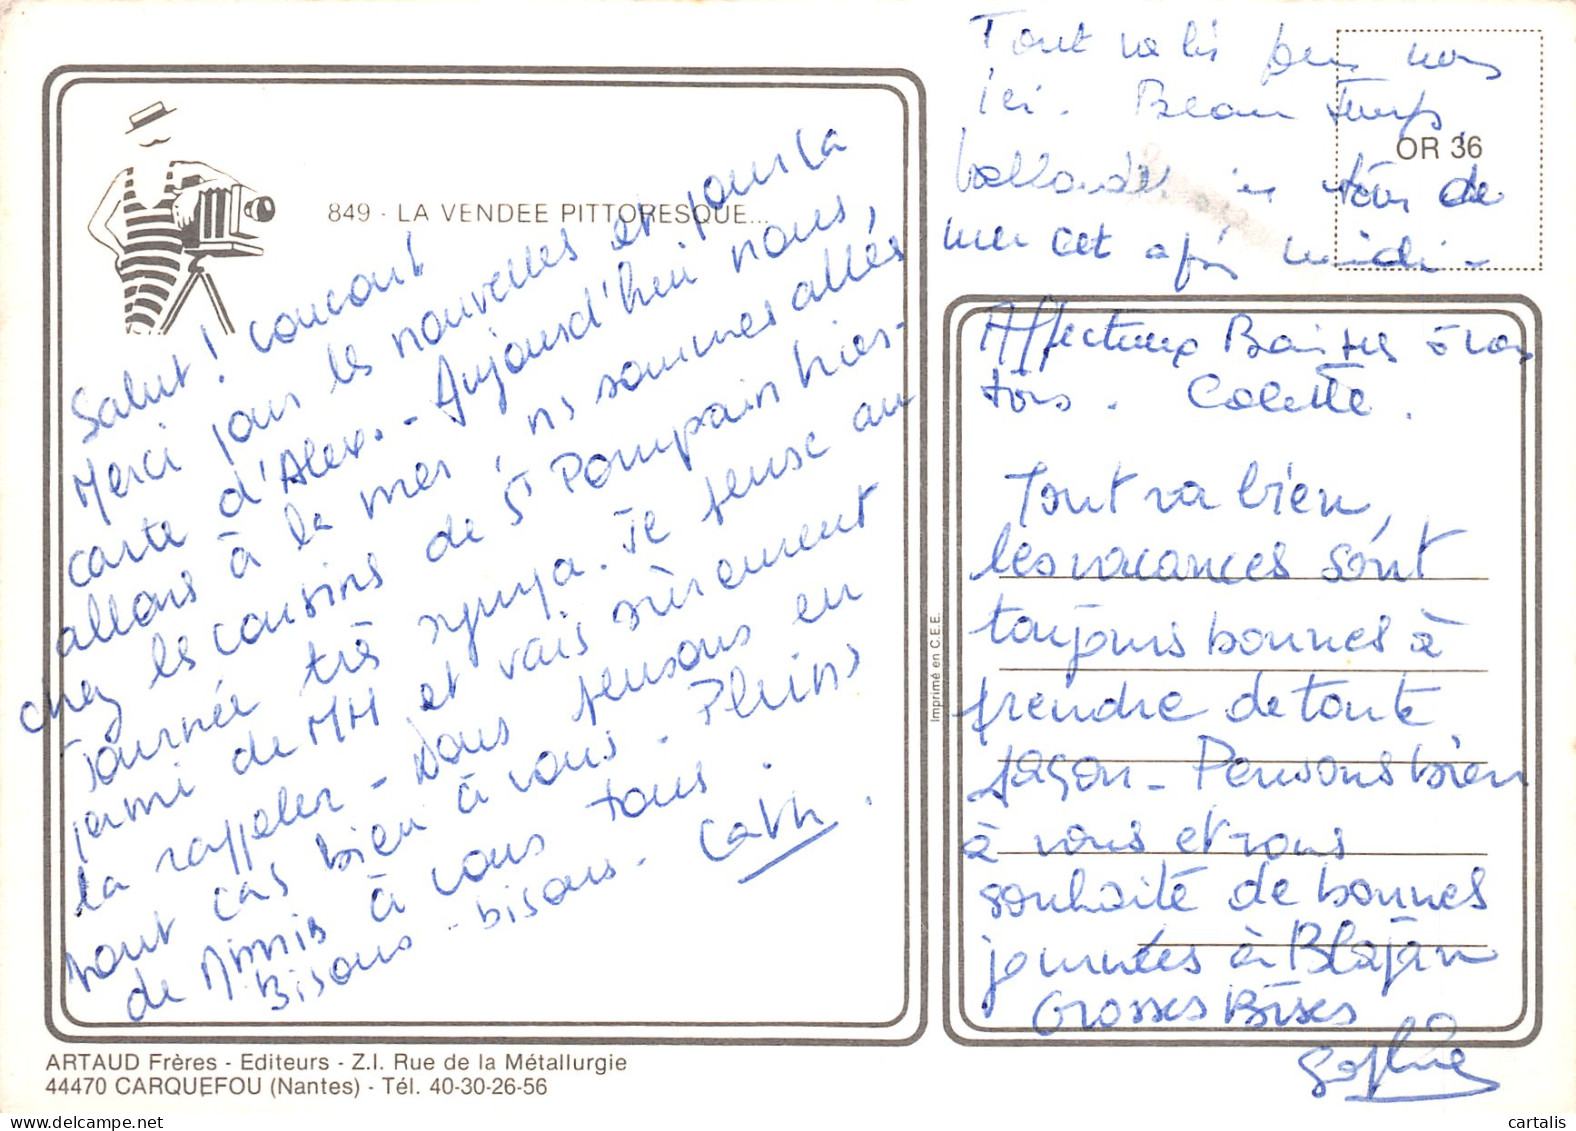 849 - LA VENDEE PITTORESQUE...
Salut! coucou!
Merci pour les nouvelles et pour la
carte d'Alex. - Aujourd'hui nous,
allons à la mer, ns sommes allés
chez les cousins de St Pompain hier -
Journée très sympa. Je pense au
permi de MH et vais sûrement
la rappeler - Nous pensons en
tout cas bien à vous. Pleins
de Mimis à vous tous.
Bisous - bisous. Cath.
ARTAUD Frères - Editeurs - Z.I. Rue de la Métallurgie
44470 CARQUEFOU (Nantes) - Tél. 40-30-26-56
Imprimé en C.E.E.
OR 36
Tout va bis pour nous
ici. Beau temps,
ballade en tour de
mer cet après midi -
Affectueux Baisers à vous
tous. Colette.
Tout va bien,
les vacances sont
toujours bonnes à
prendre de toute
façon - Pensons bien
à vous et vous
souhaite de bonnes
journées à Blajan
Grosses Bises
Sophie
cartalis